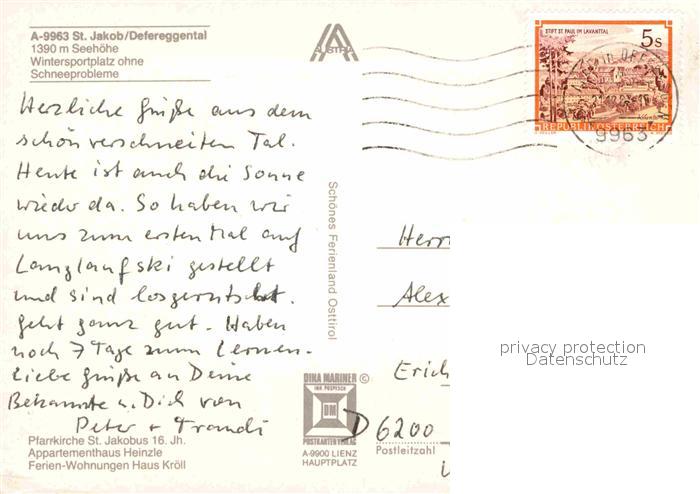 A-9963 St. Jakob/Defereggental
1390 m Seehöhe
Wintersportplatz ohne
Schneeprobleme
AUSTRIA
STIFT ST. PAUL IM LAVANTTAL
5s
Kärnten
REPUBLIK ÖSTERREICH
9963
Herzliche Grüße aus dem
schön verschneiten Tal.
Heute ist auch die Sonne
wieder da. So haben wir
uns zum ersten Mal auf
Langlaufski gestellt
und sind losgerutscht.
geht ganz gut. Haben
noch 7 Tage zum Lernen.
Liebe Grüße an Deine
Bekannte u. Dich von
Peter + Traudi
Schönes Ferienland Osttirol
Herrn
Alex
Erich
D 6200
Postleitzahl
privacy protection
Datenschutz
DINA MARINER ©
INH. POSPESCH
DM
POSTKARTENVERLAG
A-9900 LIENZ
HAUPTPLATZ
Pfarrkirche St. Jakobus 16. Jh.
Appartementhaus Heinzle
Ferien-Wohnungen Haus Kröll